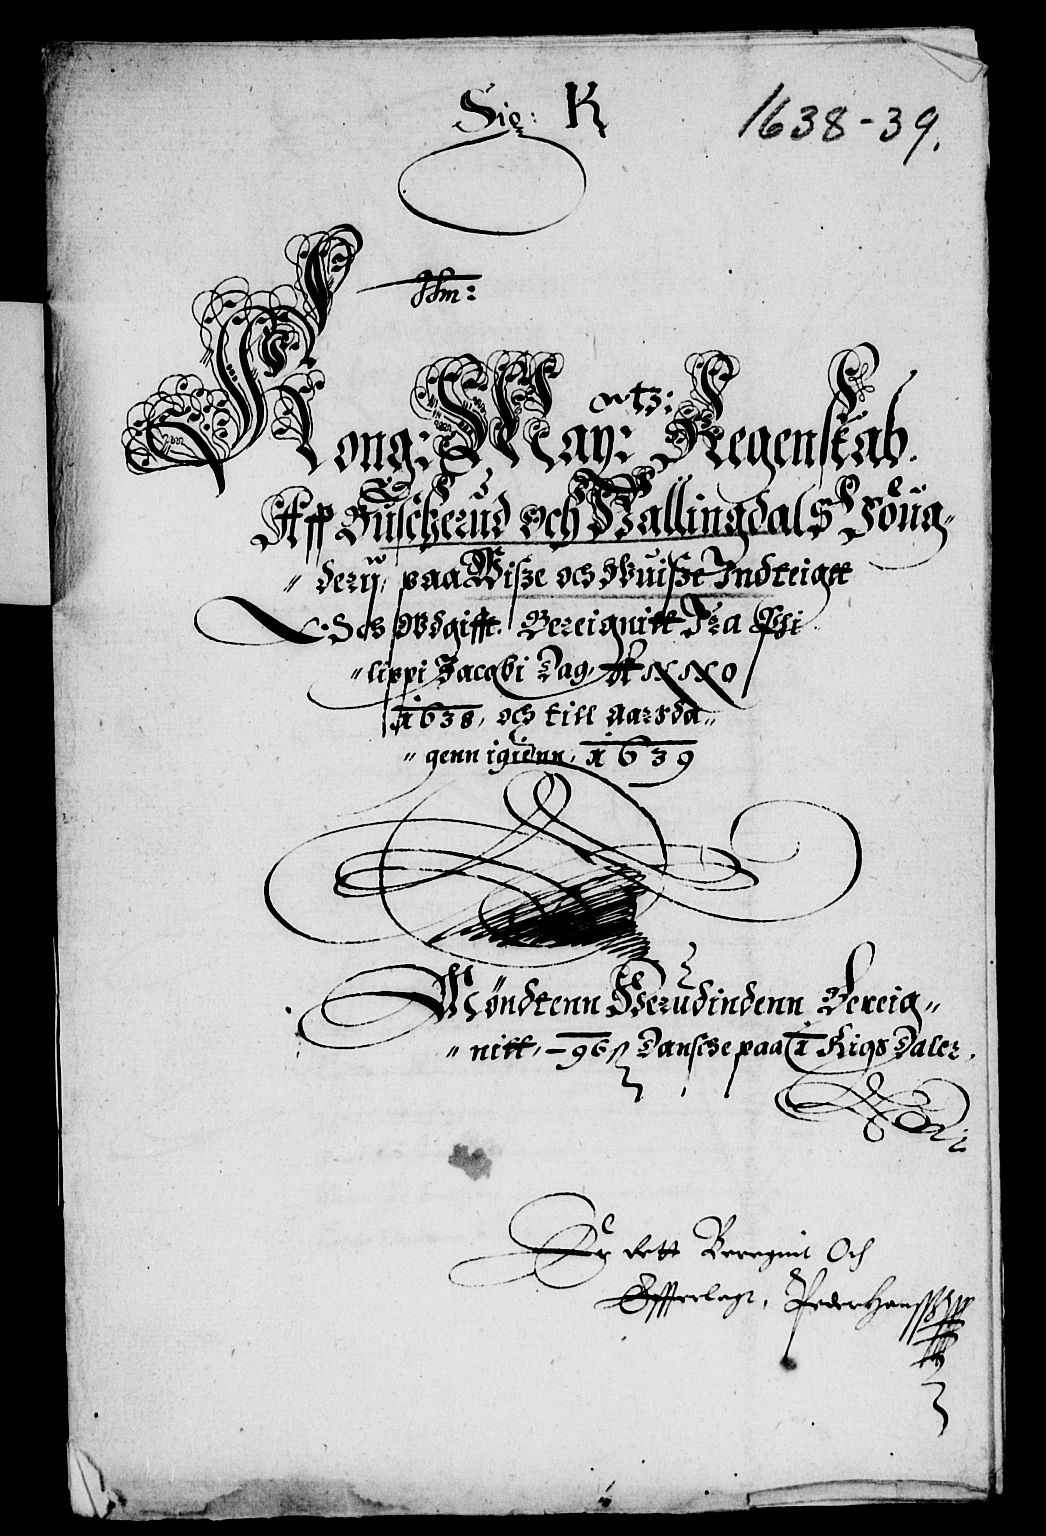 Sig: K
1638-39.
Kong: May: ttz: Regenskab
Aff Buscherud och Hallingdals Fóug-
derÿ, paa Wisze och Wuisze Indteigtt
och Wdgifft. Bereignitt Fra Phi
lippi Jacobi Dag, Anno
1638, och till aarsda-
genn igienn, 1639
Møndtenn Herudindenn Bereig-
nitt, 96 ß Dansche paa 1 Rigs Daler.
Er rett Beregnit Och
Offuerlagt, Peder Hanssen